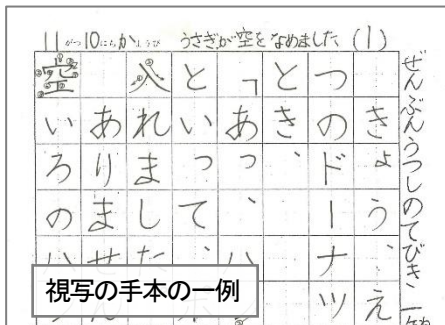 11がつ10にちかようび うさぎが空をなめました (1)
ぜんぶんうつしのてびき
きょう、え
つのドーナツ
とき、
「あっ、ハ
といって、
入れました
ありません
空いろのハ
視写の手本の一例